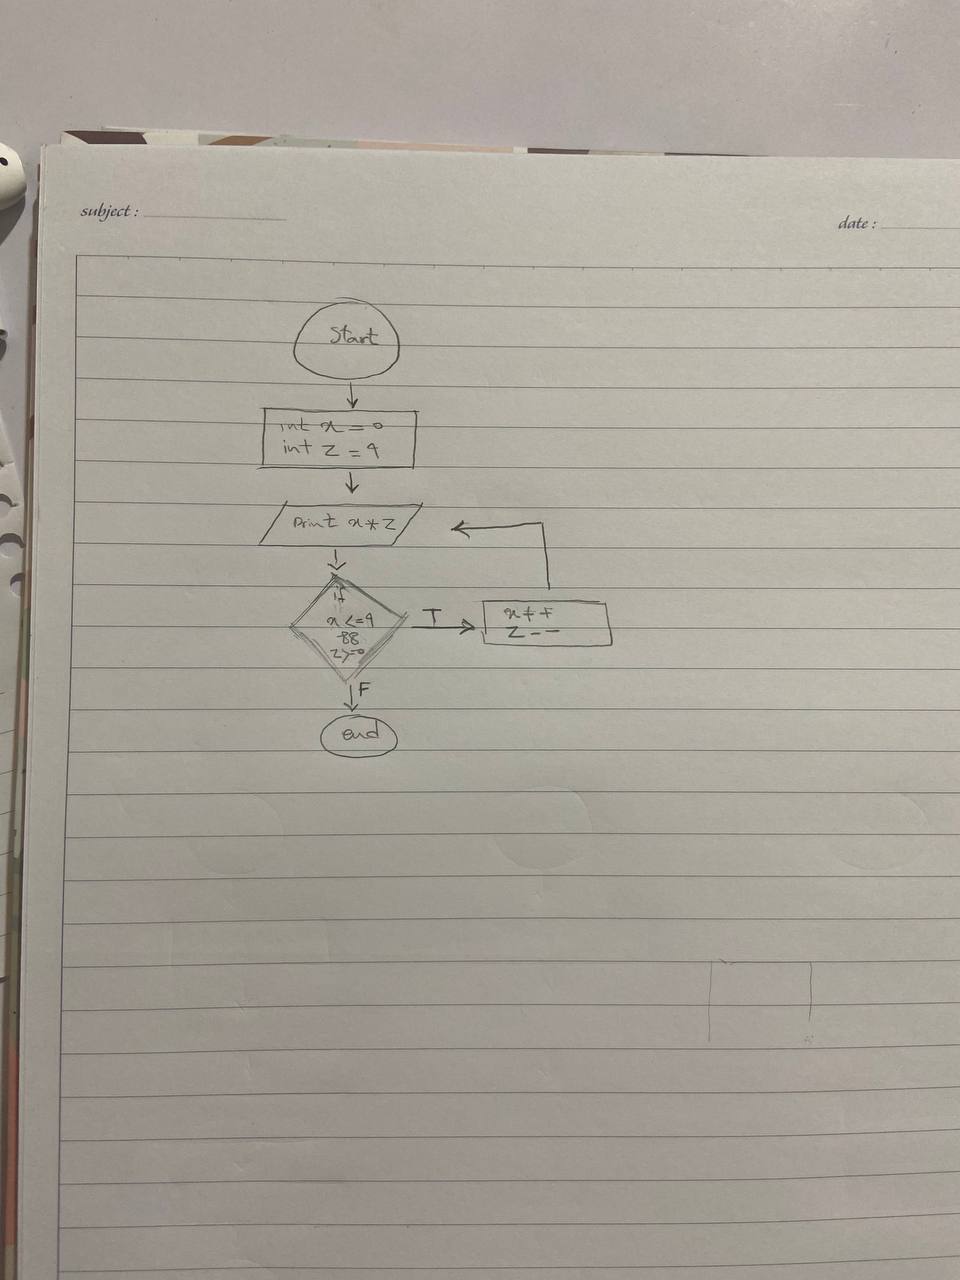 subject :
date :
Start
int x = 0
int z = 9
print x * z
if
x <= 9
&&
z >= 0
T
x++
z--
F
end